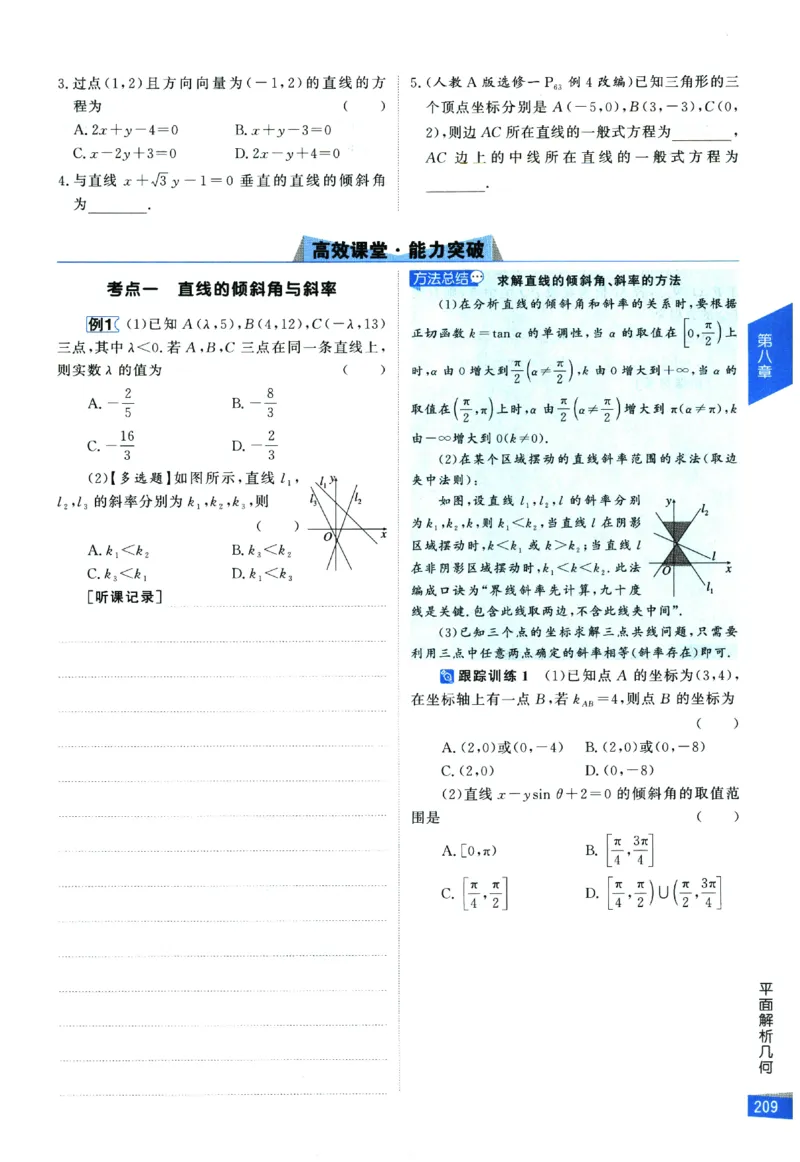 3.过点(1,2)且方向向量为(-1,2)的直线的方
程为 (　　)
A.2x+y-4=0　　B.x+y-3=0
C.x-2y+3=0　　D.2x-y+4=0
4.与直线 x+√3y-1=0 垂直的直线的倾斜角
为________.
5.(人教 A 版选修一 P63 例 4 改编)已知三角形的三
个顶点坐标分别是 A(-5,0),B(3,-3),C(0,
2),则边 AC 所在直线的一般式方程为________,
AC 边上的中线所在直线的一般式方程为
________.
高效课堂·能力突破
考点一　直线的倾斜角与斜率
例1 (1)已知 A(λ,5),B(4,12),C(-λ,13)
三点,其中 λ<0.若 A,B,C 三点在同一条直线上,
则实数 λ 的值为 (　　)
A.-2/5　　B.-8/3
C.-16/3　　D.-2/3
(2)【多选题】如图所示,直线 l1,
l2,l3 的斜率分别为 k1,k2,k3,则
(　　)
A.k1<k2　　B.k3<k2
C.k3<k1　　D.k1<k3
l1 y
l3 l2
O x
[听课记录]
方法总结 求解直线的倾斜角、斜率的方法
(1)在分析直线的倾斜角和斜率的关系时,要根据
正切函数 k=tan α 的单调性,当 α 的取值在[0,π/2)上
时,α 由 0 增大到 π/2(α≠π/2),k 由 0 增大到+∞,当 α 的
取值在(π/2,π)上时,α 由 π/2(α≠π/2)增大到 π(α≠π),k
由-∞增大到 0(k≠0).
(2)在某个区域摆动的直线斜率范围的求法(取边
夹中法则):
如图,设直线 l1,l2,l 的斜率分别
为 k1,k2,k,则 k1<k2,当直线 l 在阴影
区域摆动时,k<k1 或 k>k2;当直线 l
在非阴影区域摆动时,k1<k<k2.此法
编成口诀为“界线斜率先计算,九十度
线是关键.包含此线取两边,不含此线夹中间”.
y l2
l
O x
l1
(3)已知三个点的坐标求解三点共线问题,只需要
利用三点中任意两点确定的斜率相等(斜率存在)即可.
跟踪训练 1 (1)已知点 A 的坐标为(3,4),
在坐标轴上有一点 B,若 kAB=4,则点 B 的坐标为
(　　)
A.(2,0)或(0,-4)　　B.(2,0)或(0,-8)
C.(2,0)　　D.(0,-8)
(2)直线 x-ysin θ+2=0 的倾斜角的取值范
围是 (　　)
A.[0,π)　　B.[π/4,3π/4]
C.[π/4,π/2]　　D.[π/4,π/2)∪(π/2,3π/4]
第八章
平面解析几何
209